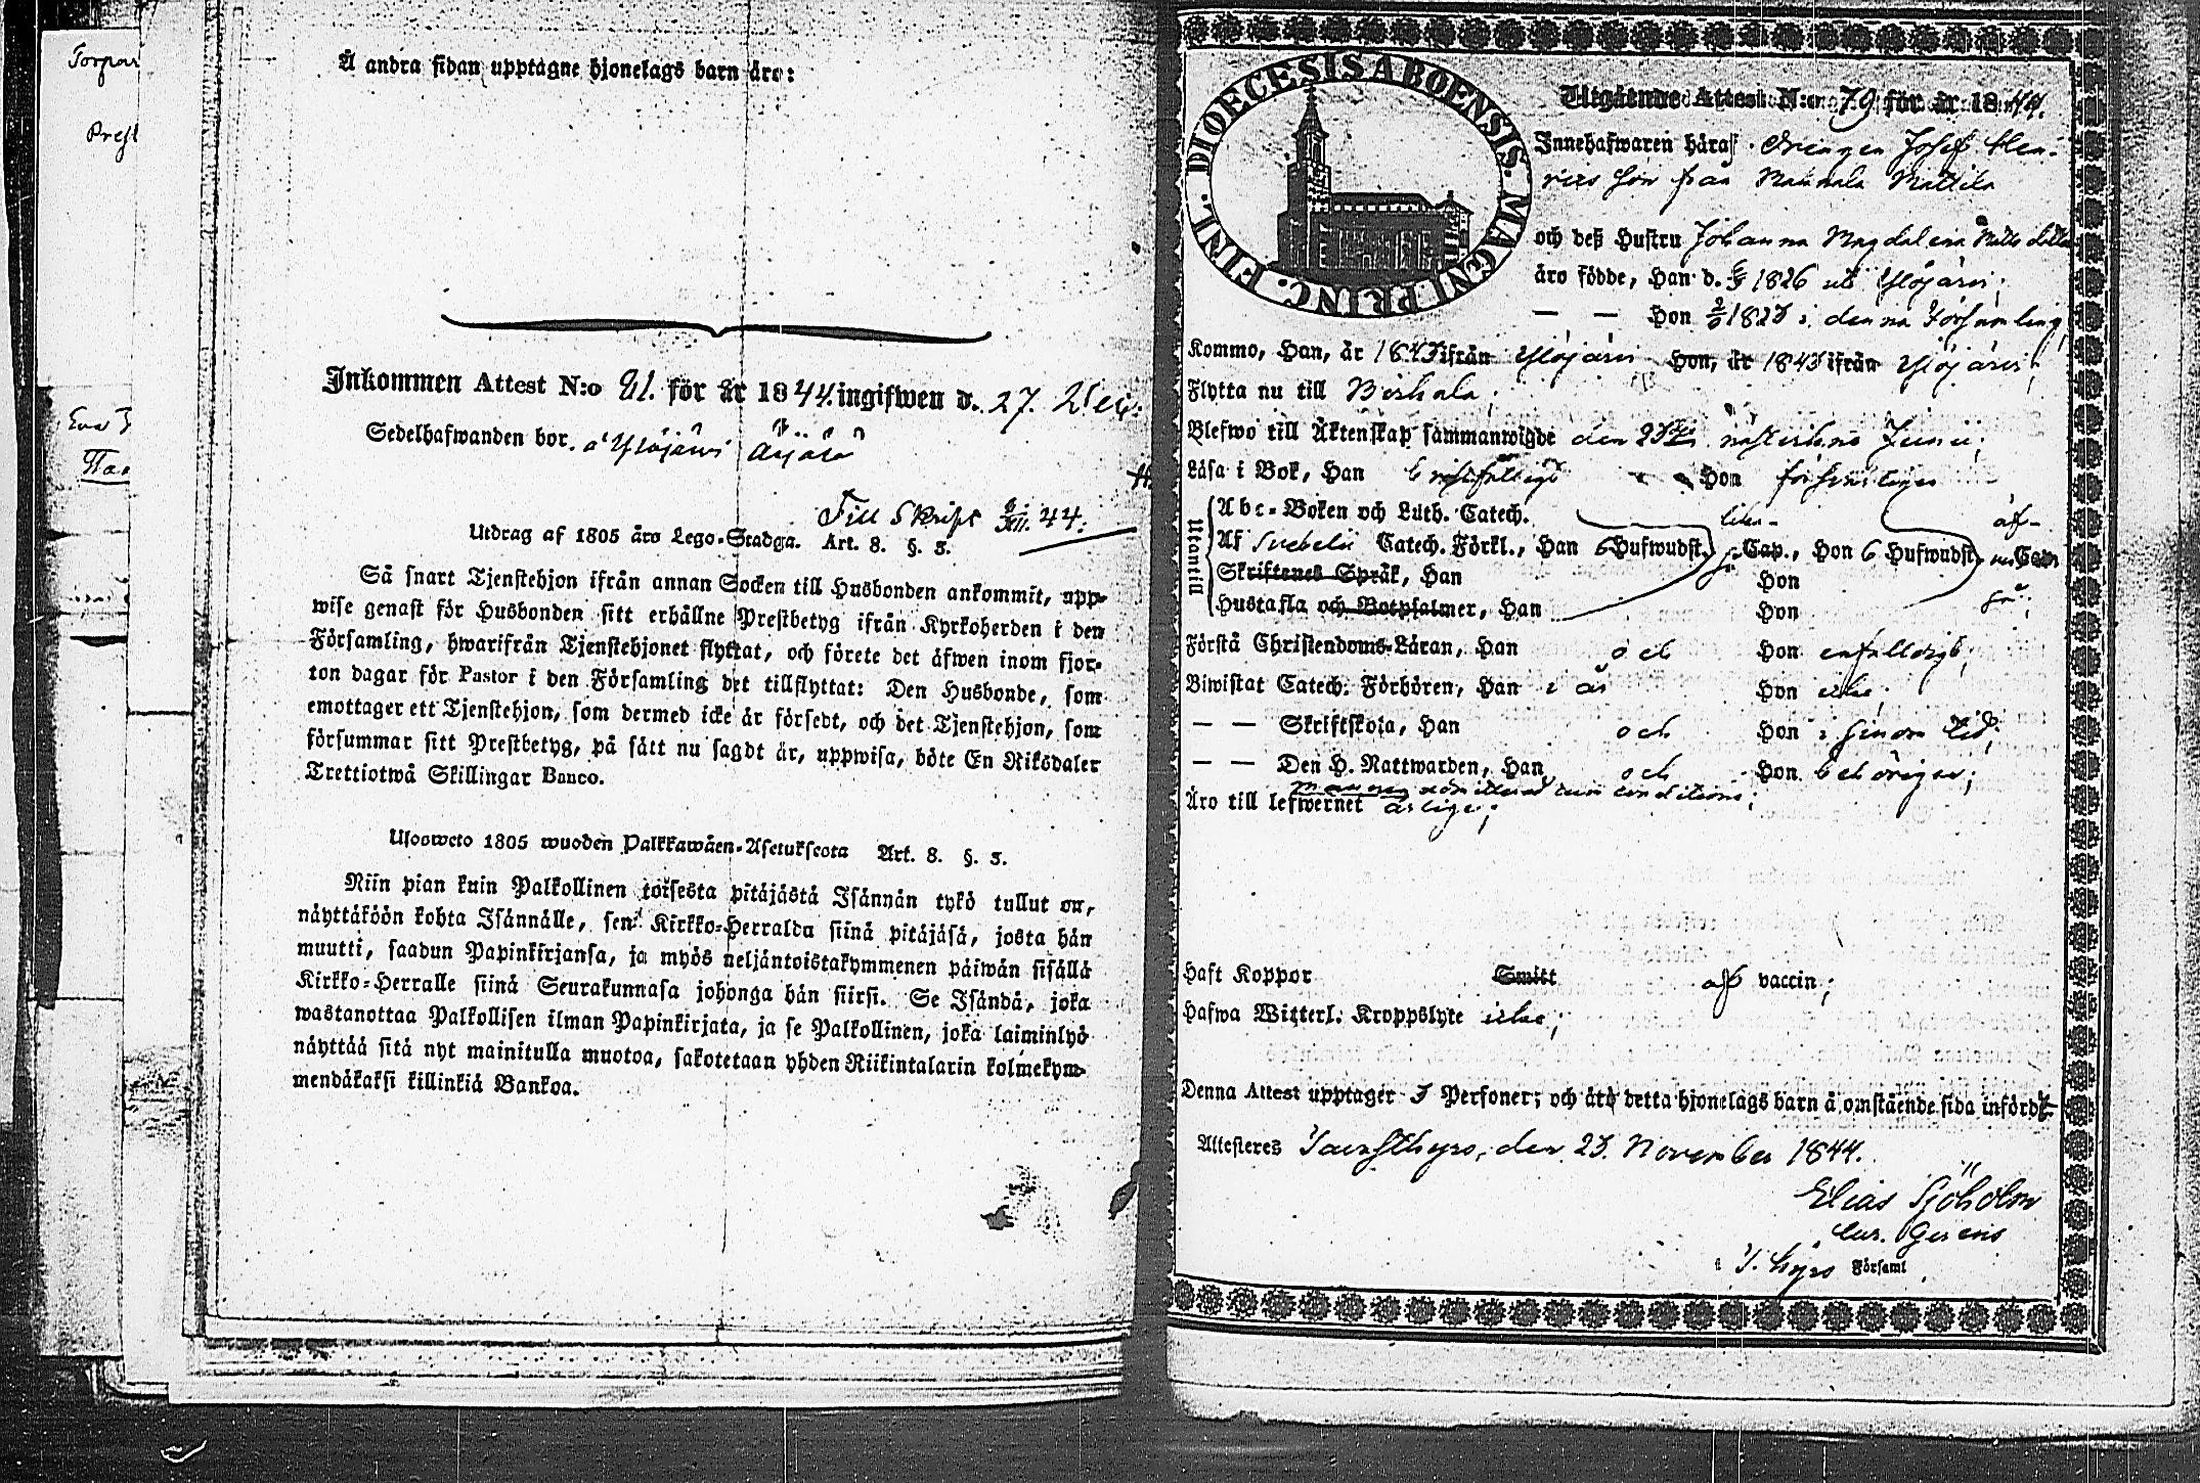 Torpar
Prest
Å andra sidan upptagne hjonelags barn äro:
Inkommen Attest N:o 81. för år 1844. ingifwen d. 27. Dec:
Sedelhafwanden bor. å Ylöjärvi
Till Skrift 44:
Utdrag af 1805 års Lego-Stadga. Art. 8. §. 3.
Så snart Tjenstehjon ifrån annan Socken till Husbonden ankommit, upp-
wise genast för Husbonden sitt erhållne Prestbetyg ifrån Kyrkoherden i den
Församling, hwarifrån Tjenstehjonet flyttat, och förete det äfwen inom fjor-
ton dagar för Pastor i den Församling det tillflyttat: Den Husbonde, som
emottager ett Tjenstehjon, som dermed icke är försedt, och det Tjenstehjon, som
försummar sitt Prestbetyg, på sätt nu sagdt är, uppwisa, böte En Riksdaler
Trettiotwå Skillingar Banco.
Ulosweto 1805 wuoden Palkkawäen-Asetuksesta Art. 8. §. 3.
Niin pian kuin Palkollinen toisesta pitäjästä Isännän tykö tullut on,
näyttäköön kohta Isännälle, sen Kirkko-Herralda siinä pitäjäsä, josta hän
muutti, saadun Papinkirjansa, ja myös neljäntoistakymmenen päiwän sisällä
Kirkko-Herralle siinä Seurakunnasa johonga hän siirsi. Se Isändä, joka
wastanottaa Palkollisen ilman Papinkirjata, ja se Palkollinen, joka laiminlyö
näyttää sitä nyt mainitulla muotoa, sakotetaan yhden Riikintalarin kolmekym-
mendäkaksi killinkiä Bankoa.
DIOECESIS ABOENSIS. MAGNI PRINC. FINL.
Utgående Attest N:o 79 för år 1844.
Innehafwaren häraf Drängen Josef Hen-
rics son från Mattila
och deß Hustru Johanna Magdalena Matts dotter
äro födde, Han d. 1826 uti Ylöjärvi;
— — Hon 1823 i denna Församling;
Kommo, Han, år 1843 ifrån Ylöjärvi Hon, år 1843 ifrån Ylöjärvi;
Flytta nu till Birkala;
Blefwo till Äktenskap sammanwigde den 23die Junii;
Läsa i Bok, Han Hon försvarligen
Utantill
Abc-Boken och Luth. Catech.
Af Svebelii Catech. Förkl., Han 6 Hufwudst. Cap., Hon 6 Hufwudst. Cap.
Skriftenes Språk, Han Hon
Hustafla och Botpsalmer, Han Hon
Förstå Christendoms-Läran, Han och Hon enfalldigt;
Biwistat Catech. Förhören, Han i år Hon icke;
— — Skriftskola, Han och Hon i sinom tid;
— — Den H. Nattwarden, Han och Hon behörigen;
Äro till lefwernet ärlige;
Haft Koppor Smitt af vaccin;
Hafwa Witterl. Kroppslyte icke;
Denna Attest upptager Personer; och äro detta hjonelags barn å omstående sida införde
Attesteres Tavastkyro, den 23. November 1844.
Elias Sjöholm
Cur. Gerens
i T. Kyro Församl